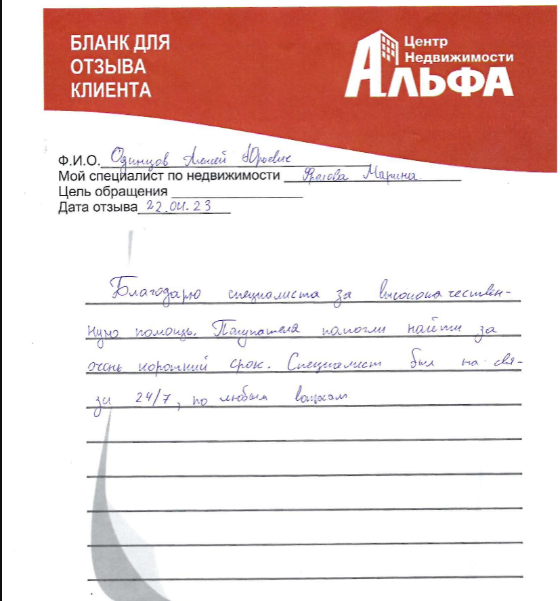 БЛАНК ДЛЯ
ОТЗЫВА
КЛИЕНТА
Центр
Недвижимости
АЛЬФА
Ф.И.О. Одинцов Алексей Юрьевич
Мой специалист по недвижимости Марина
Цель обращения
Дата отзыва 22.04.23
Благодарю специалиста за высококачествен-
ную помощь. Покупателя помогли найти за
очень короткий срок. Специалист был на свя-
зи 24/7, по любым вопросам